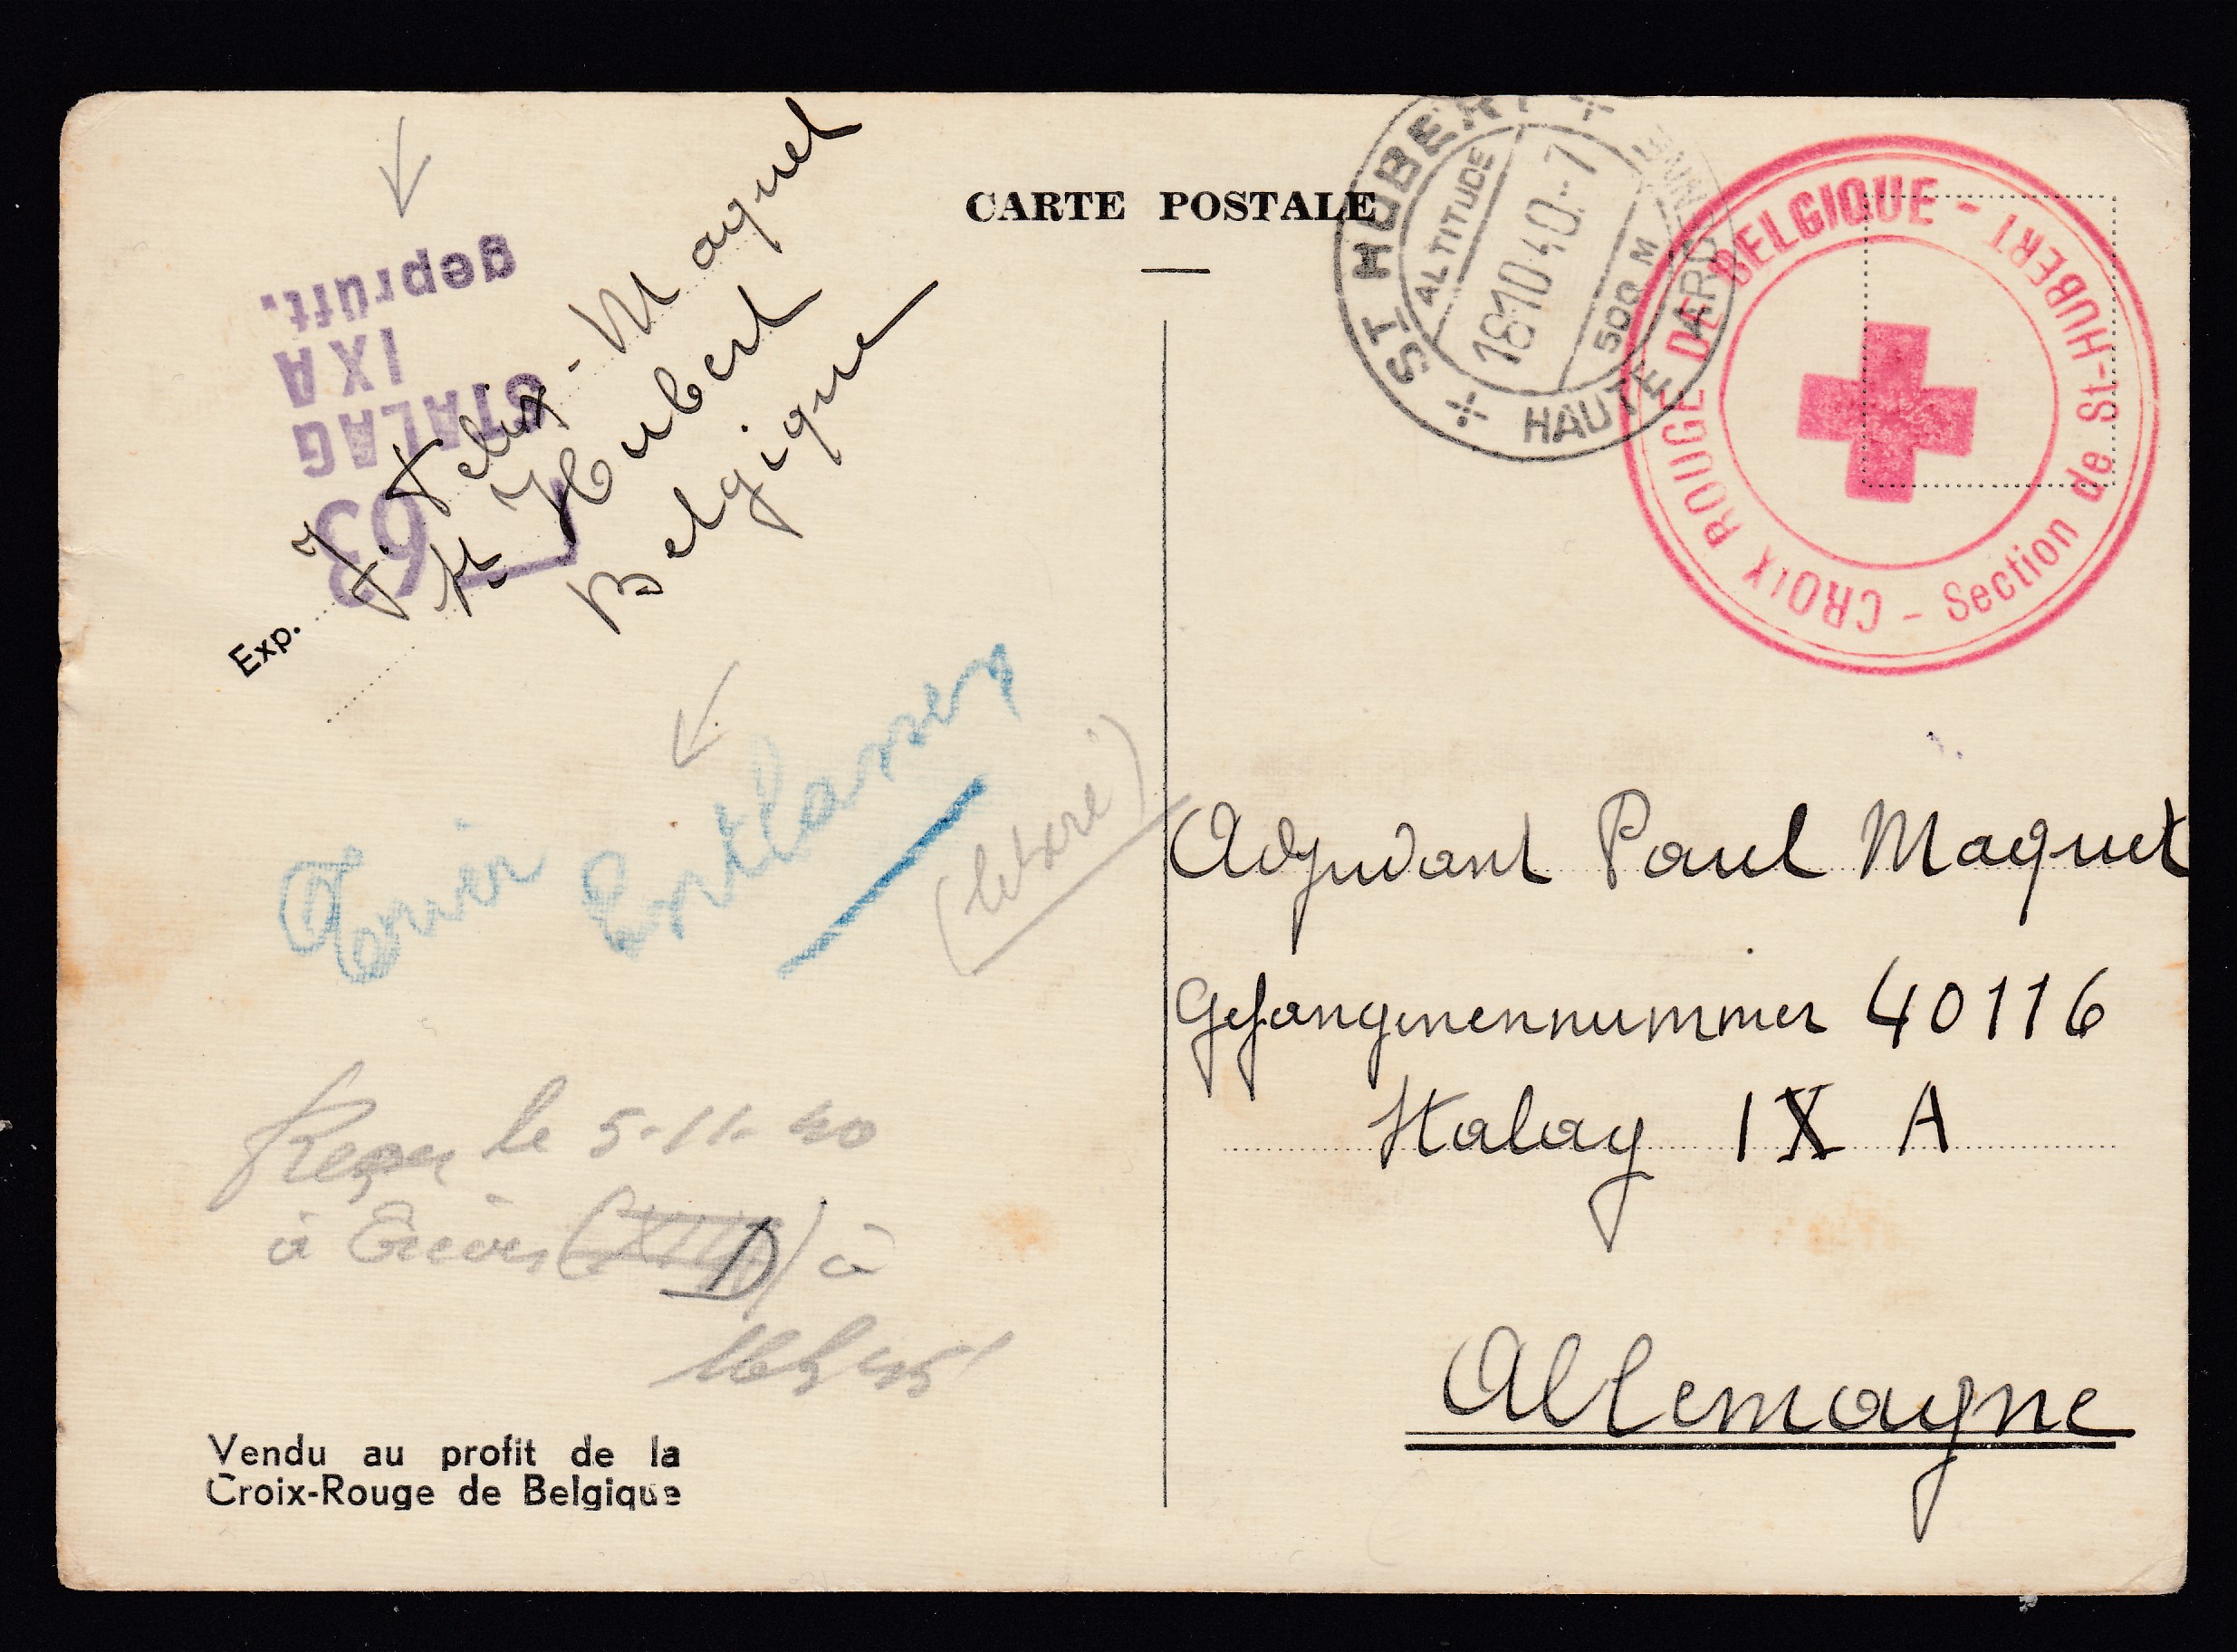 CARTE POSTALE
ST HUBERT
ALTITUDE
18.10.40.-7
500 M
HAUTE ARDENNE
CROIX ROUGE DE BELGIQUE - Section de St-HUBERT -
geprüft.
STALAG
IXA
63
Exp. J. Felix-Maquet
St Hubert
Belgique
Trier Entlassen
Adjudant Paul Maquet
Gefangenennummer 40116
Stalag IX A
Allemagne
Reçu le 5-11-40
à Trèves (XII D) à
16h45
Vendu au profit de la
Croix-Rouge de Belgique